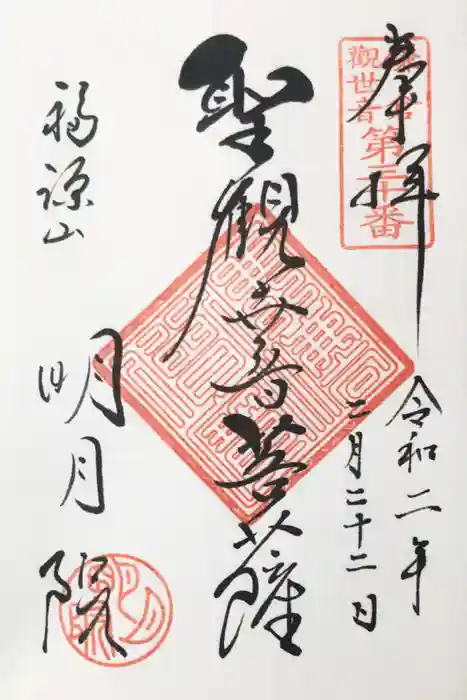 奉拝
觀世音
第三十番
令和二年
二月二十二日
聖觀世音菩薩
福源山
明月院